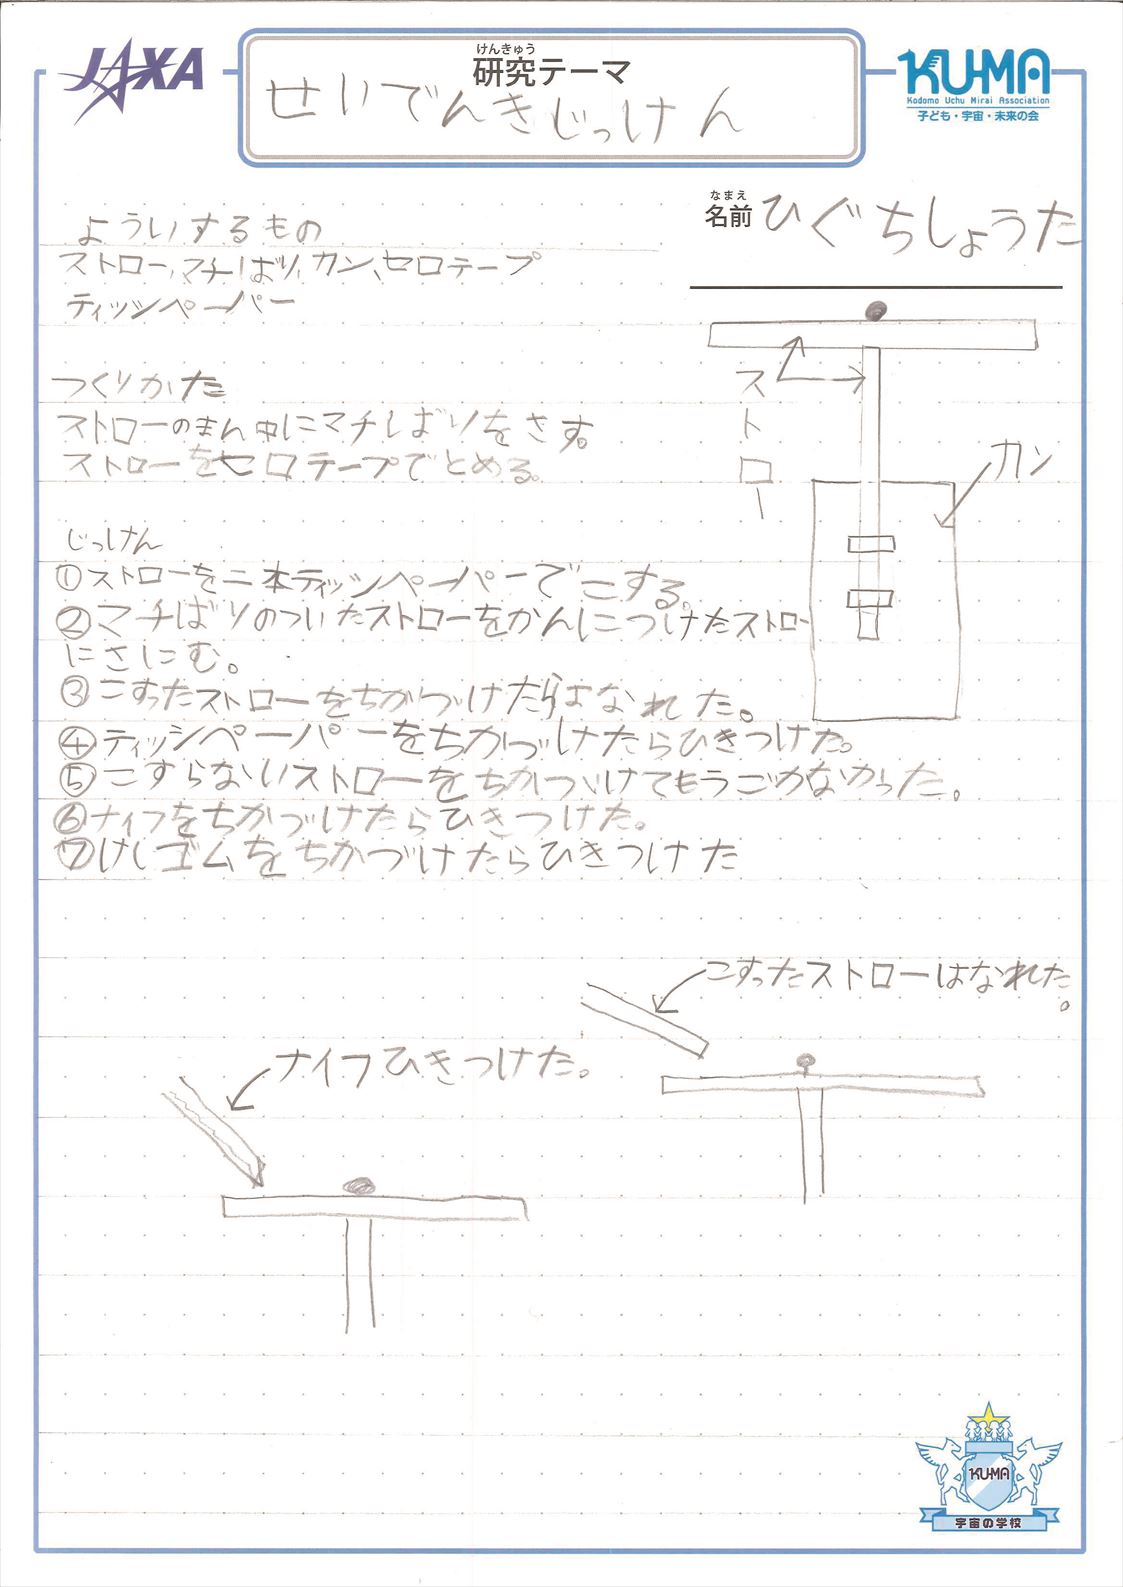 JAXA
けんきゅう
研究テーマ
せいでんきじっけん
KU-MA
Kodomo Uchu Mirai Association
子ども・宇宙・未来の会
なまえ
名前 ひぐちしょうた
よういするもの
ストロー、マチばり、カン、セロテープ
ティッシペーパー
つくりかた
ストローのまん中にマチばりをさす。
ストローをセロテープでとめる。
ストロー
カン
じっけん
①ストローを二本ティッシペーパーでこする。
②マチばりのついたストローをかんにつけたストロー
にさにむ。
③こすったストローをちかづけたらはなれた。
④ティッシペーパーをちかづけたらひきつけた。
⑤こすらないストローをちかづけてもうごかなかった。
⑥ナイフをちかづけたらひきつけた。
⑦けしゴムをちかづけたらひきつけた
こすったストローはなれた。
ナイフひきつけた。
KU-MA
宇宙の学校